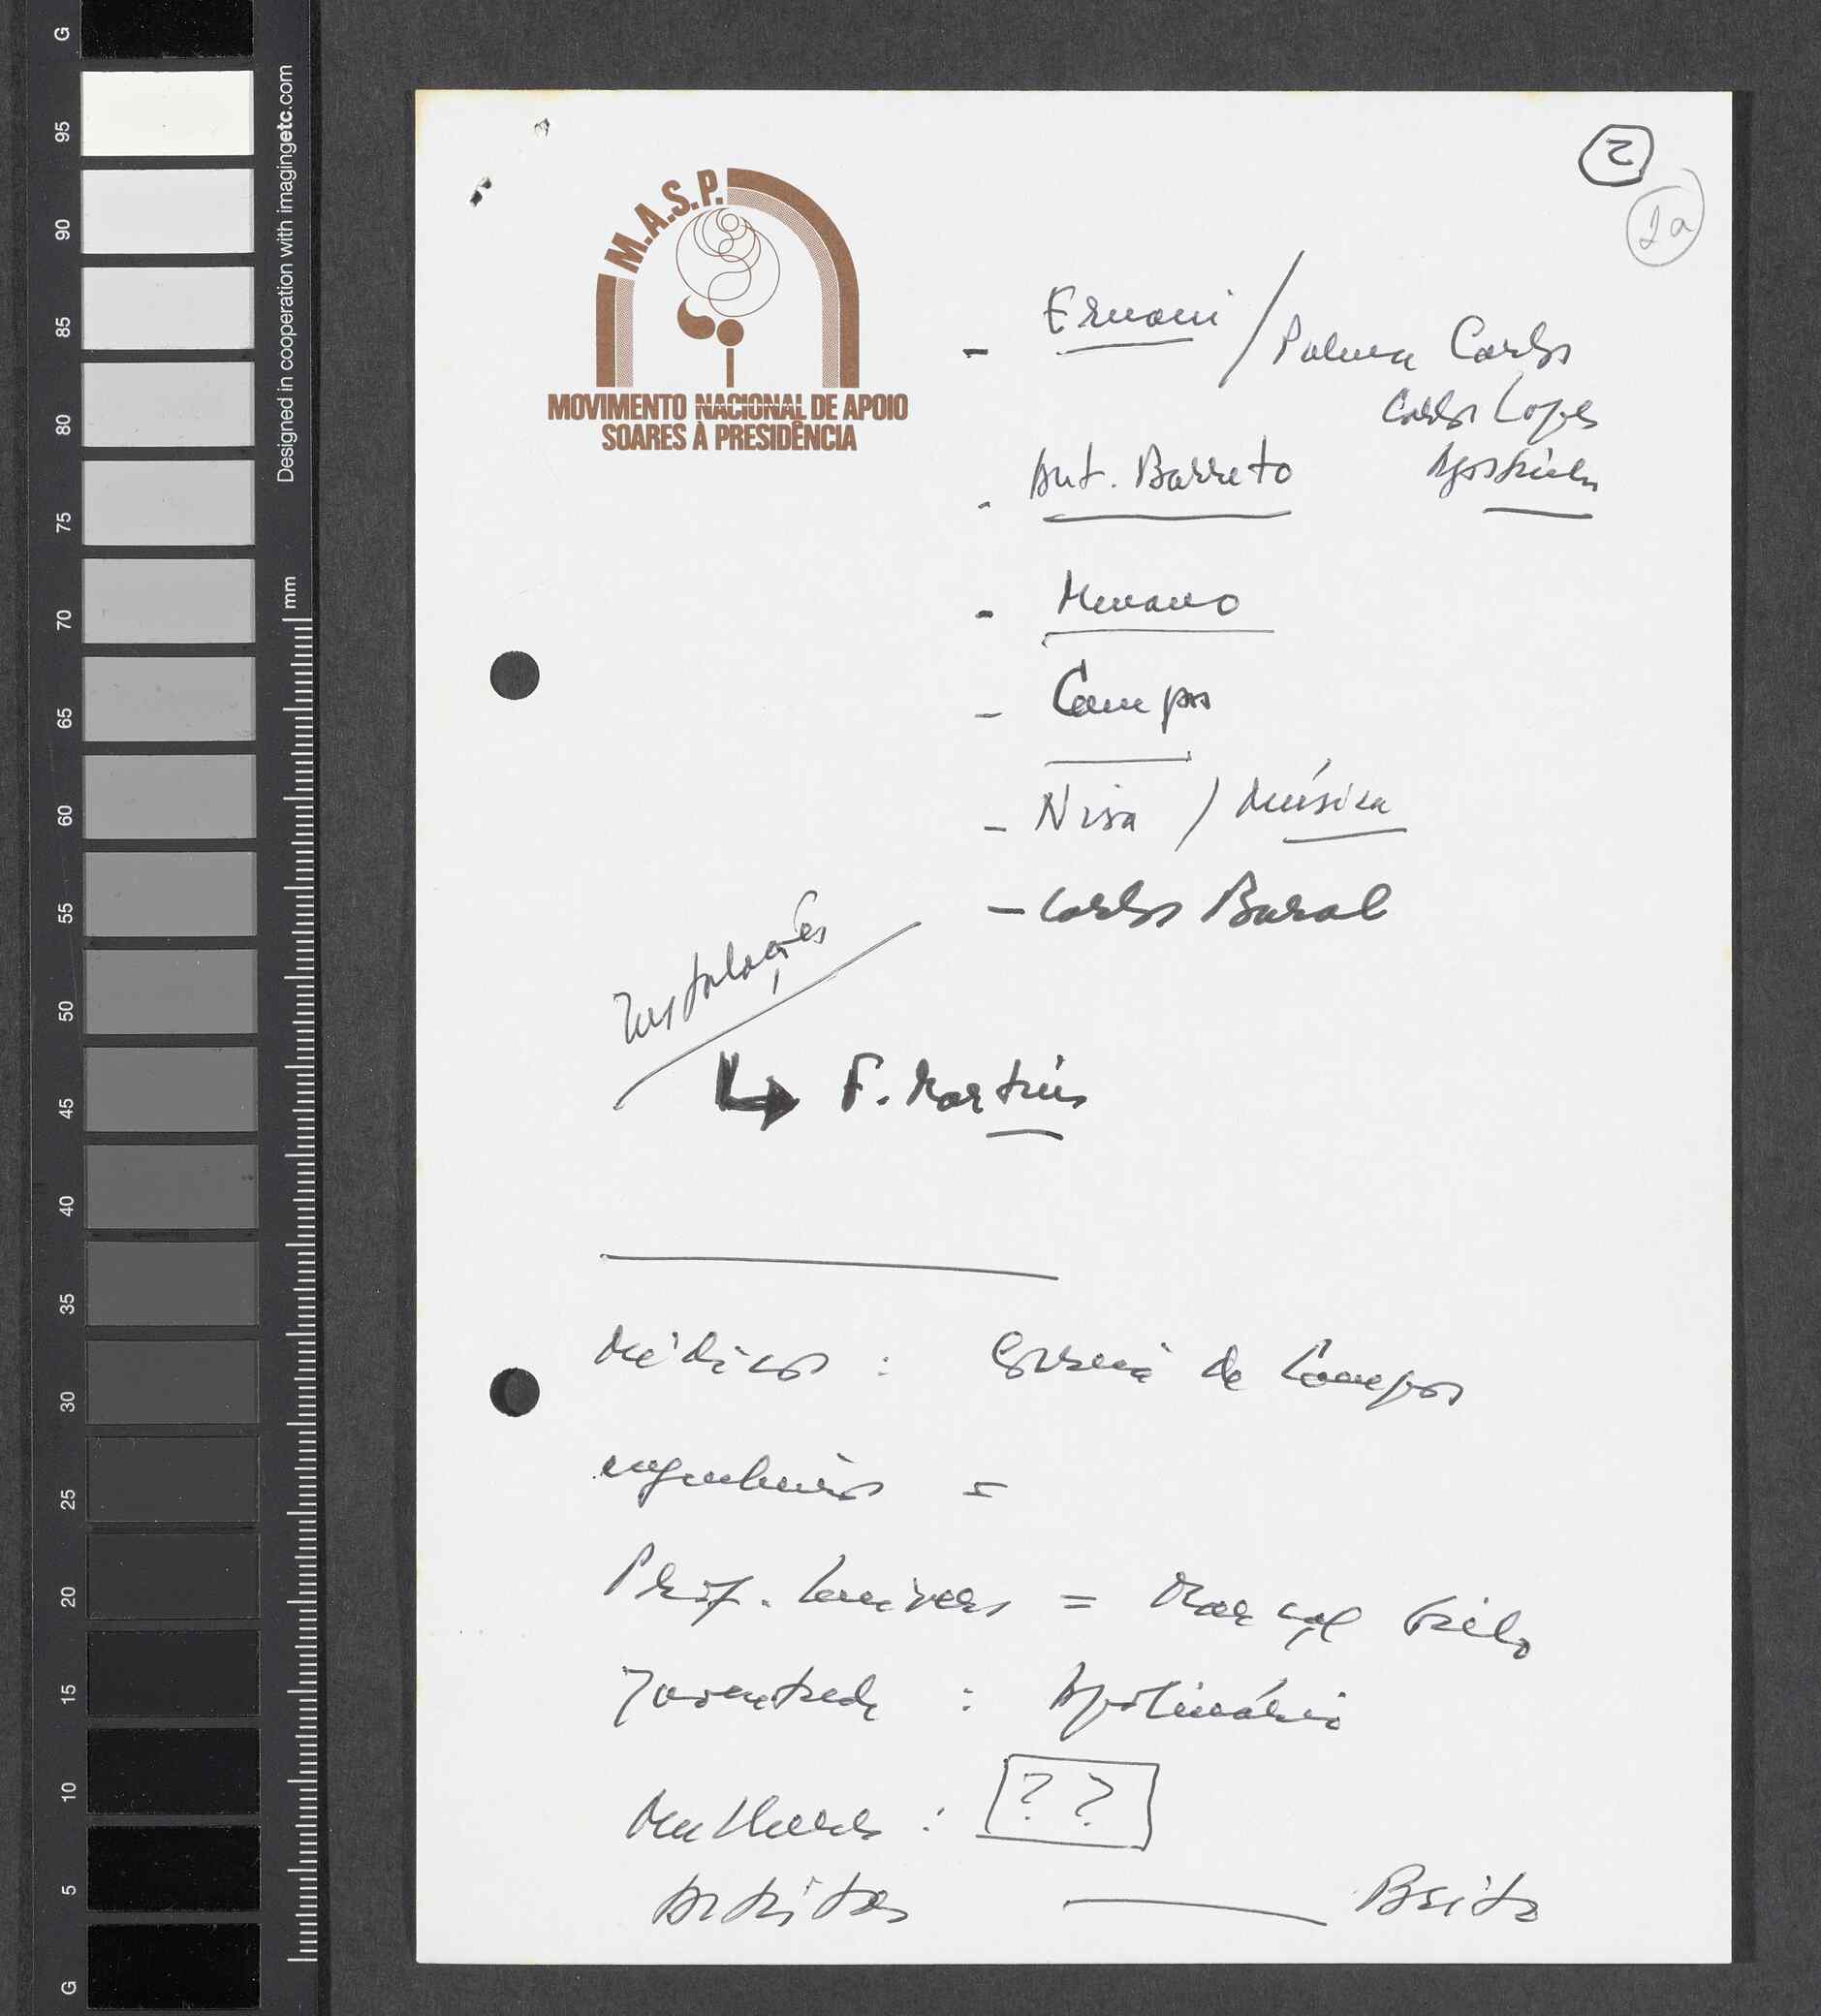 2
2a
M.A.S.P.
MOVIMENTO NACIONAL DE APOIO
SOARES À PRESIDÊNCIA
- Ernani / Palma Carlos
Carlos Lopes
- Ant. Barreto Agostinho
- Menano
- Campos
- Nisa / Música
- Carlos Baral
Instalações
↳ F. Martins
Médicos : Correia de Campos
engenheiros =
Prof. Univers = Marçal Grilo
Juventude : Apolinário
Mulheres : ??
Artistas — Brito
G
95
90
85
80
75
70
65
60
55
50
45
40
35
30
25
20
15
10
5
G
Designed in cooperation with imagingetc.com
mm